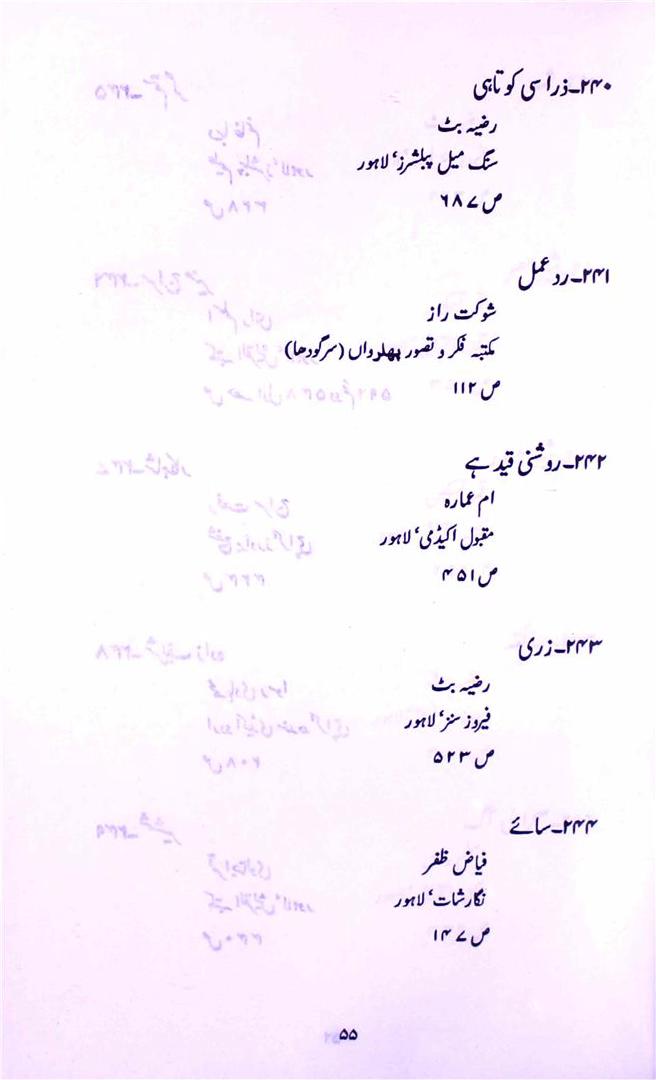 ۲۴۰۔ذرا سی کوتاہی
رضیہ بٹ
سنگ میل پبلشرز، لاہور
ص ۶۸۷
۲۴۱۔رد عمل
شوکت راز
مکتبہ فکر و تصور پھلرواں (سرگودھا)
ص ۱۱۲
۲۴۲۔روشنی قید ہے
ام عمارہ
مقبول اکیڈمی، لاہور
ص ۴۵۱
۲۴۳۔زری
رضیہ بٹ
فیروز سنز، لاہور
ص ۵۲۳
۲۴۴۔سائے
فیاض ظفر
نگارشات، لاہور
ص ۱۴۷
۵۵